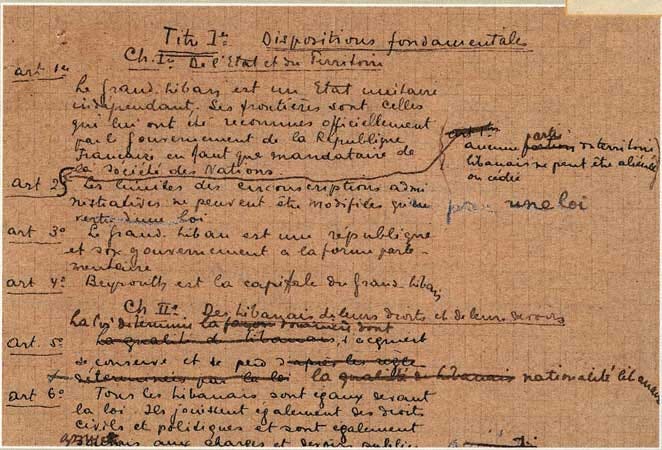 Titre Ier Dispositions fondamentales
Ch. Ier De l'Etat et du Territoire
art 1er
Le Grand Liban est un Etat unitaire
indépendant. Ses frontières sont celles
qui lui ont été reconnues officiellement
par le Gouvernement de la République
Française en tant que mandataire de
la Société des Nations.
aucune partie du territoire
libanais ne peut être aliénée
ou cédée
art 2
Les limites des circonscriptions admi-
nistratives ne peuvent être modifiées qu'en
vertu d'une loi
par une loi
art 3º
Le Grand Liban est une république
et son gouvernement a la forme parle-
mentaire
art 4º Beyrouth est la capitale du Grand-Liban
Ch IIe Des Libanais de leurs droits et de leurs devoirs
La loi détermine la façon dont
art. 5º la qualité de Libanais, s'acquiert
se conserve et se perd d'après les règles
x déterminées par la loi la qualité de Libanais nationalité libanaise
art 6º Tous les Libanais sont égaux devant
la loi. Ils jouissent également des droits
civils et politiques et sont également
aux charges et devoirs publics